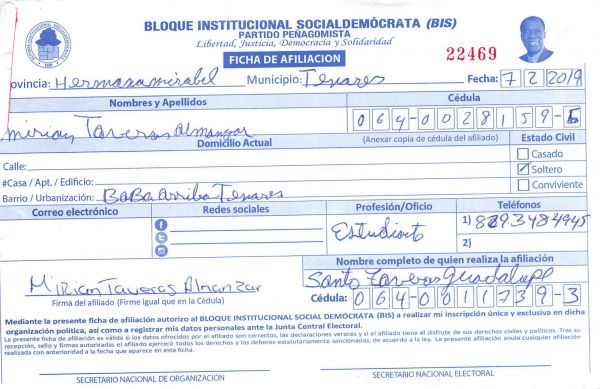 BLOQUE INSTITUCIONAL SOCIALDEMÓCRATA (BIS)
PARTIDO PEÑAGOMISTA
Libertad, Justicia, Democracia y Solidaridad
FICHA DE AFILIACION
22469
ovincia: Hermanamirabel Municipio: Tenares Fecha: 7 2 2019
Nombres y Apellidos Cédula
mirian Taveras Almanzar 064-0028159-5
Domicilio Actual (Anexar copia de cédula del afiliado) Estado Civil
Calle: Casado
#Casa / Apt. / Edificio: Soltero
Barrio / Urbanización: BaBa Arriba Tenares Conviviente
Correo electrónico Redes sociales Profesión/Oficio Teléfonos
Estudiante 1) 8293484945
2)
Nombre completo de quien realiza la afiliación
Mirian Taveras Almanzar Santo Taveras Guadalupe
Firma del afiliado (Firme igual que en la Cédula) Cédula: 064-0011739-3
Mediante la presente ficha de afiliación autorizo al BLOQUE INSTITUCIONAL SOCIAL DEMÓCRATA (BIS) a realizar mi inscripción única y exclusiva en dicha
organización política, así como a registrar mis datos personales ante la Junta Central Electoral.
La presente ficha de afiliación es válida si los datos ofrecidos por el afiliado son correctos, las declaraciones veraces y si el afiliado tiene el disfrute de sus derechos civiles y políticos. Tras su
recepción, sello y firmas autorizadas el afiliado ejercerá todos los derechos y los deberes estatutariamente sancionados, de acuerdo a la ley. La presente afiliación anula cualquier afiliación
realizada con anterioridad a la fecha que aparece en esta ficha.
SECRETARIO NACIONAL DE ORGANIZACIÓN SECRETARIO NACIONAL ELECTORAL